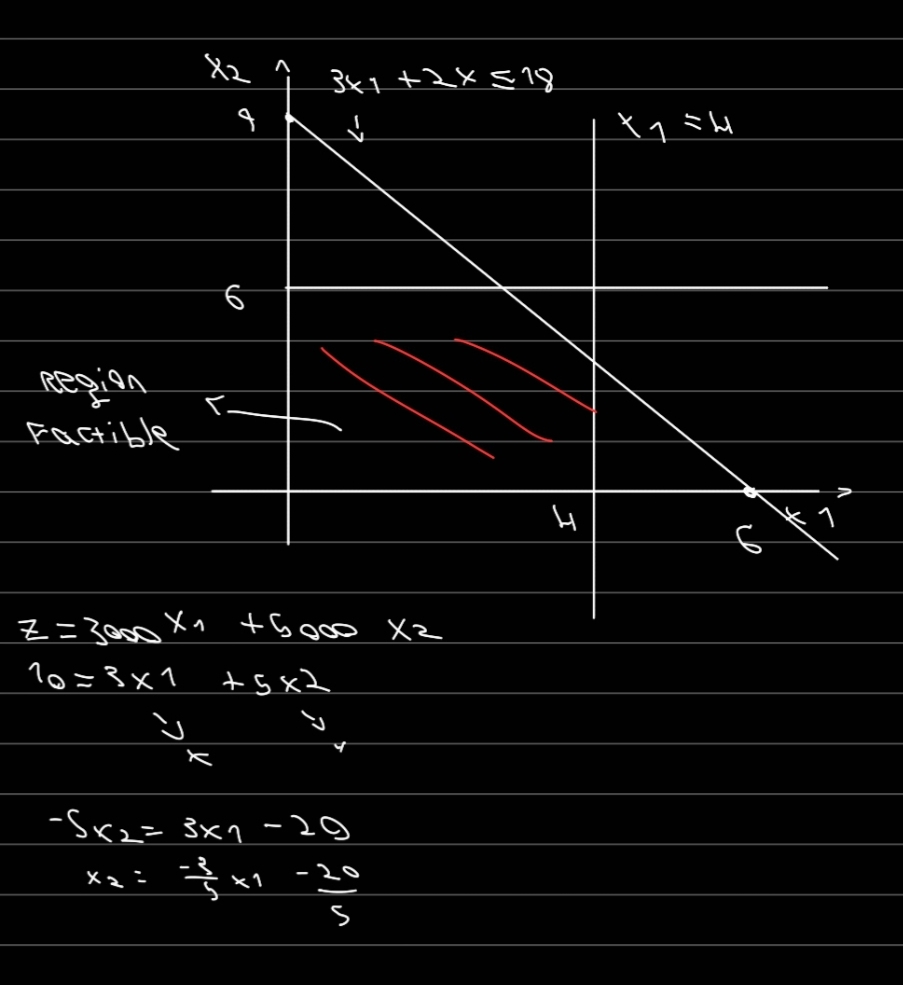 x2
3x1 + 2x ≤ 18
9
x1 = 4
6
Region
Factible
4
6
x1
z = 3000 x1 + 5000 x2
10 = 3x1 + 5x2
x
-5x2 = 3x1 - 20
x2 = -3/5 x1 - 20/5